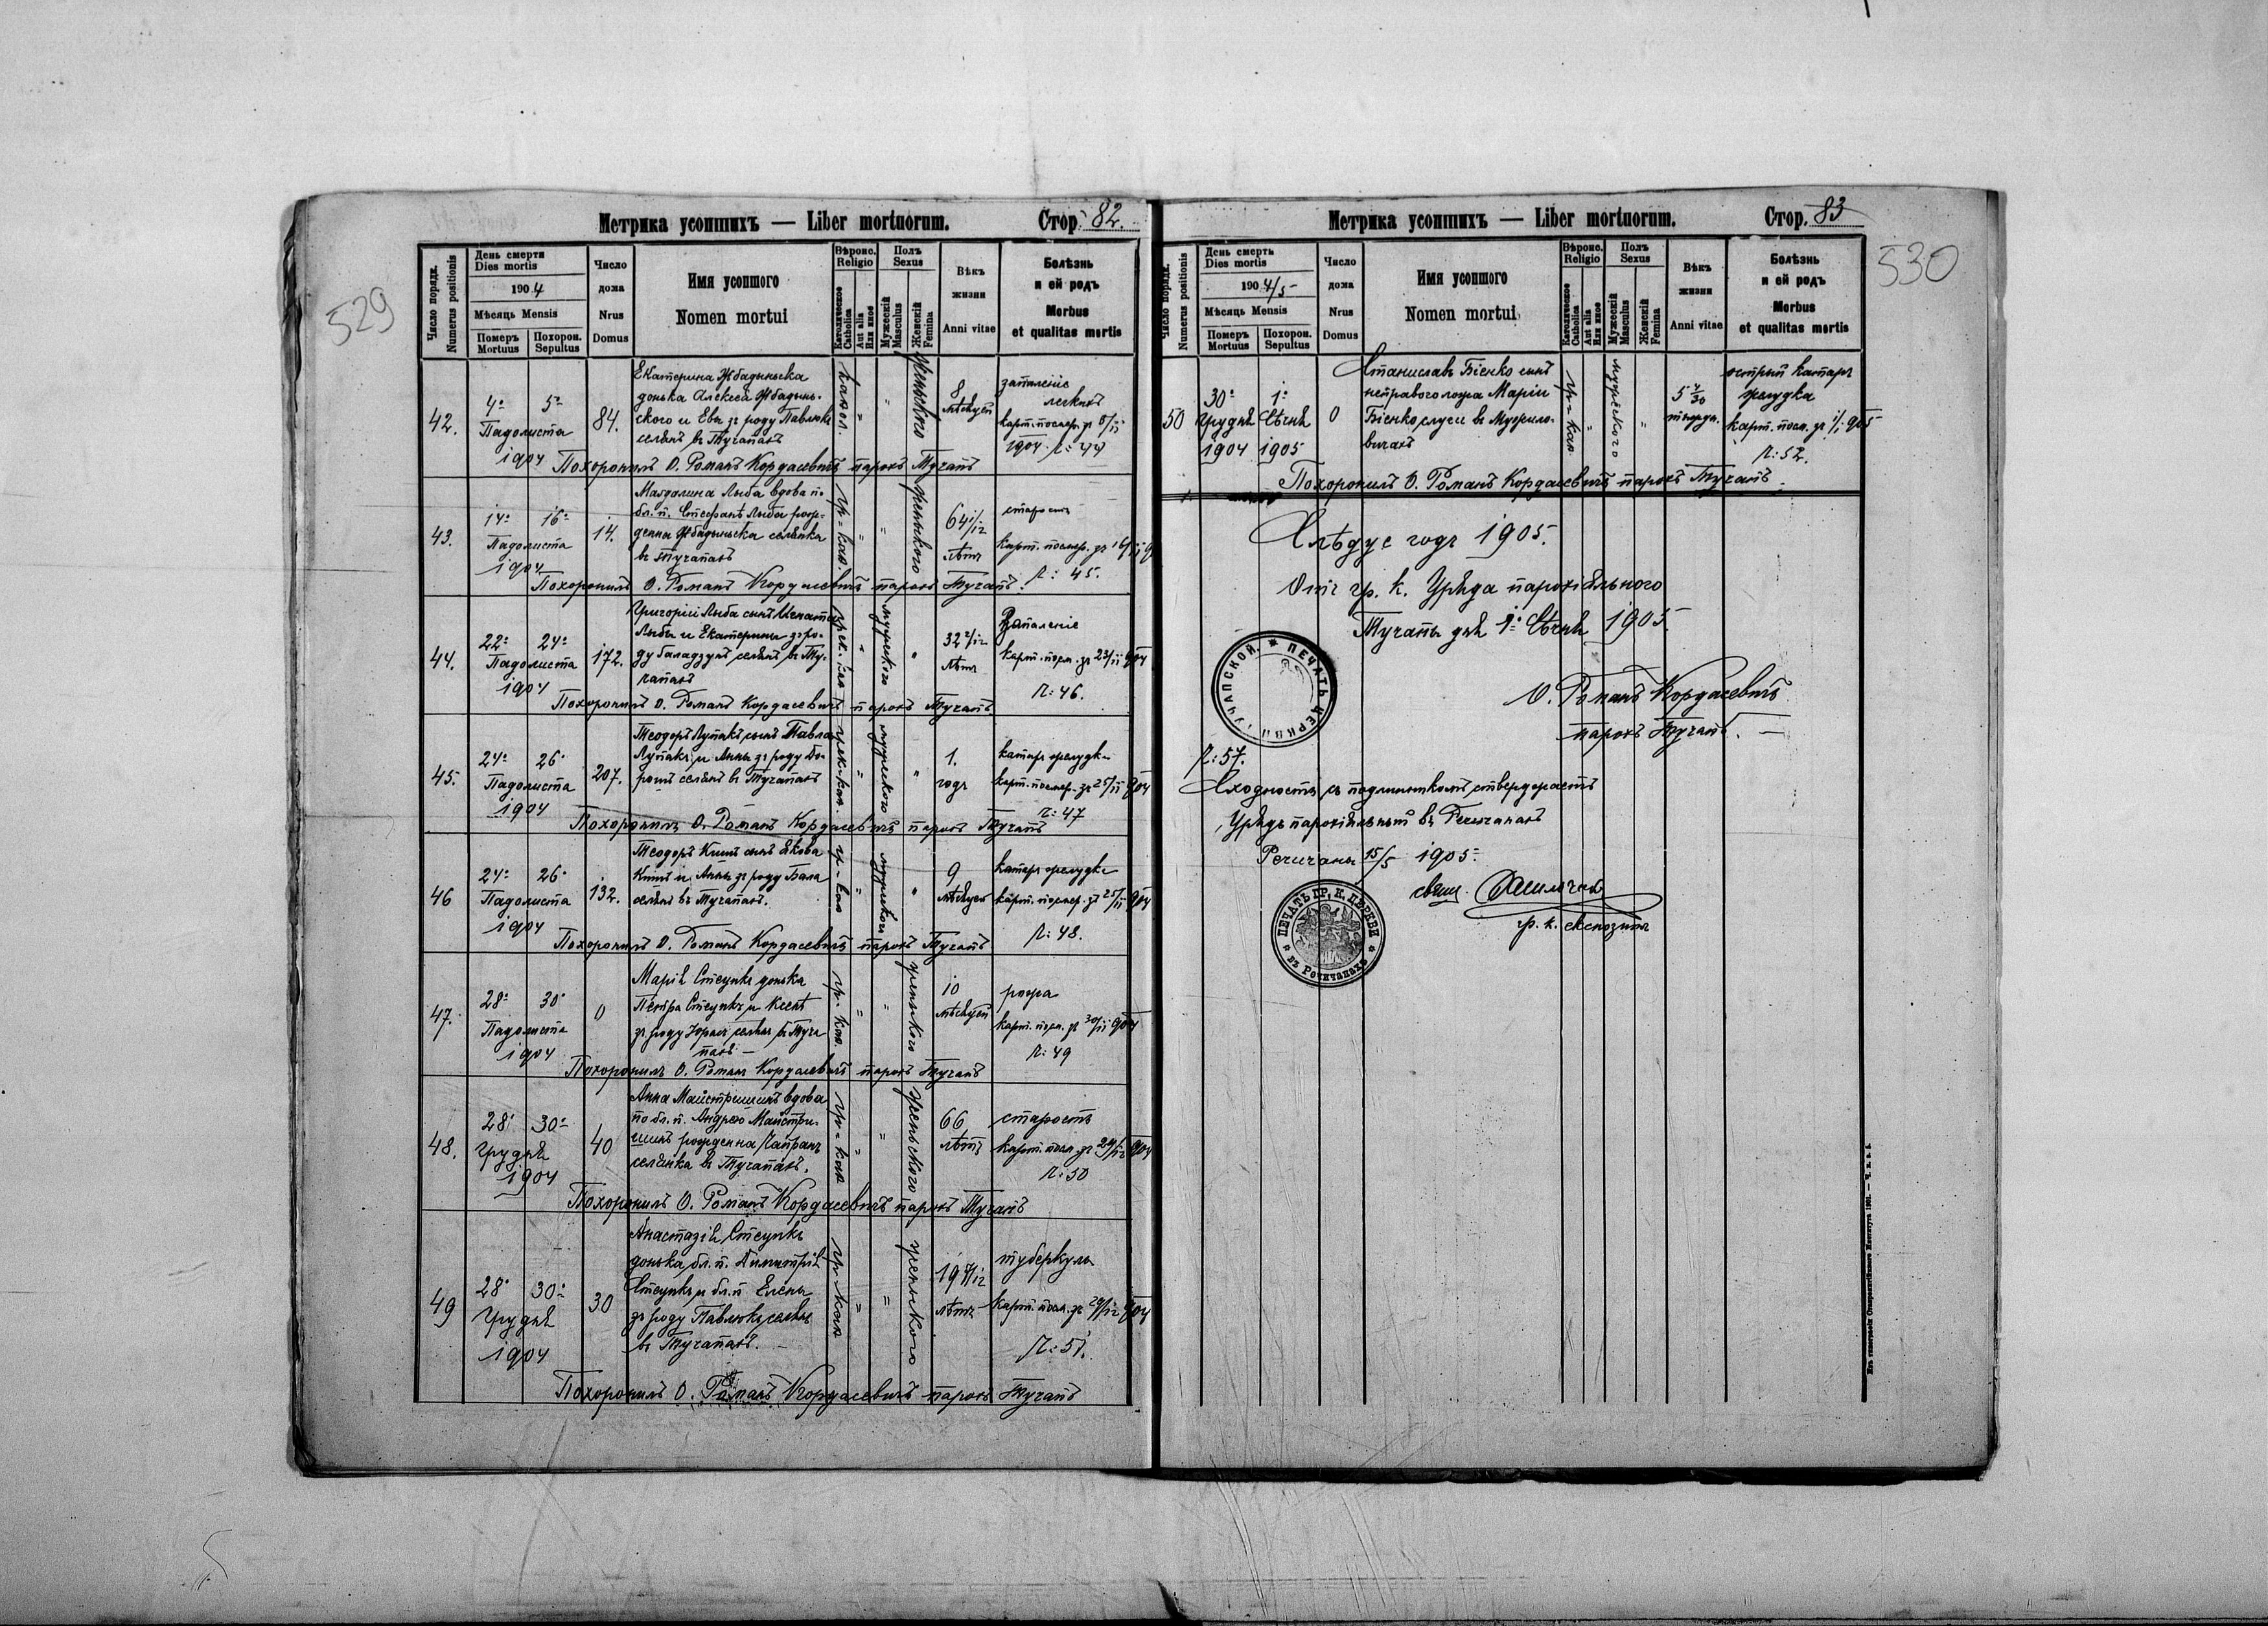 529
Метрика усопшихъ — Liber mortuorum.
Стор. 82.
Число порядк.
Numerus positionis
День смерти
Dies mortis
1904
Мѣсяць Mensis
Померъ
Mortuus
Похорон.
Sepultus
Число
дома
Nrus
Domus
Имя усопшого
Nomen mortui
Вѣроис.
Religio
Католическое
Catholica
Aut alia
Или иное
Полъ
Sexus
Мужескій
Masculus
Женскій
Femina
Вѣкъ
жизни
Anni vitae
Болѣзнь
и ей родъ
Morbus
et qualitas mortis
42.
4
5
Падолиста
1904
84.
Екатерина
донька Алексея
ского и Евы зъ роду Павлюкъ
селянъ въ Тучапахъ
катол.
женьского
8
мѣсяцей
запаленіе
легкихъ
1904 Л: 44
Похоронилъ О. Романъ Кордасевичъ парохъ Тучапъ
43.
14
16
Падолиста
1904
14.
Магдалина Лыба вдова по
бл. п. Стефанѣ Лыба рож-
дена селянка
въ Тучапахъ
гр=кат.
женьского
64 1/12
лѣтъ
старость
Л: 45.
Похоронилъ О. Романъ Кордасевичъ парохъ Тучапъ.
44.
22
24
Падолиста
1904
172.
Григорій Лыба сынъ Игнатія
Лыбы и Екатерины зъ ро-
ду селянъ въ Ту-
чапахъ
мужеского
32 2/12
лѣтъ
Запаленіе
Л: 46.
Похоронилъ О. Романъ Кордасевичъ парохъ Тучапъ
45.
24
26
Падолиста
1904
207.
Теодоръ Лупакъ сынъ Павла
Лупакъ и Анны зъ роду
селянъ въ Тучапахъ
мужеского
1.
годъ
катаръ желудка
Л: 47
Похоронилъ О. Романъ Кордасевичъ парохъ Тучапъ
46
24
26
Падолиста
1904
132.
Теодоръ сынъ Якова
и Анны зъ роду Бала
селянъ въ Тучапахъ.
гр-кат
мужеского
9
мѣсяцей
катаръ желудка
Л: 48.
Похоронилъ О. Романъ Кордасевичъ парохъ Тучапъ
47.
28
30
Падолиста
1904
0
Марія Стецукъ донька
Петра Стецукъ и
зъ роду селянъ въ Туча
пахъ —
гр. кат.
женьского
10
мѣсяцей
рожа
Л: 49
Похоронилъ О. Романъ Кордасевичъ парохъ Тучапъ
48.
28
30
Грудня
1904
40
Анна Майстришинъ вдова
по бл. п. Андрею Майстри-
шинъ рожденна
селянка въ Тучапахъ.
гр=кат
женьского
66
лѣтъ
старость
Л: 50
Похоронилъ О. Романъ Кордасевичъ парохъ Тучапъ
49
28
30
Грудня
1904
30
Анастазія Стецукъ
донька бл. п. Димитрія
Стецукъ и бл. п Елены
зъ роду Павлюкъ селянъ
въ Тучапахъ. —
гр кат
женьского
лѣтъ
туберкулы
Л: 51.
Похоронилъ О. Романъ Кордасевичъ парохъ Тучапъ
530
Метрика усопшихъ — Liber mortuorum.
Стор. 83
Число порядк.
Numerus positionis
День смерть
Dies mortis
1904/5
Мѣсяць Mensis
Померъ
Mortuus
Похорон.
Sepultus
Число
дома
Nrus
Domus
Имя усопшого
Nomen mortui
Вѣроис.
Religio
Католическое
Catholica
Aut alia
Или иное
Полъ
Sexus
Мужескій
Masculus
Женскій
Femina
Вѣкъ
жизни
Anni vitae
Болѣзнь
и ей родъ
Morbus
et qualitas mortis
50
30
1
Грудня Сѣчня
1904 1905
0
Станиславъ Бієнко сынъ
неправого ложа Маріи
Бієнко слуги въ
гр=кат
мужеского
острый катаръ
желудка
Л: 52.
Похоронилъ О. Романъ Кордасевичъ парохъ Тучапъ.
Слѣдує годъ 1905.
Отъ гр. к. Уряда парохіяльного
Тучапы дня 1 Сѣчня 1905
О. Романъ Кордасевичъ
парохъ Тучапъ. —
ПЕЧАТЬ ЦЕРКВИ ТУЧАПСКОЙ
Л: 57.
Сходность съ подлинникомъ стверджаєтъ
Урядъ парохіяльный въ Речичанахъ
Речичаны 15/5 1905
свящ.
гр. к. експозитъ
ПЕЧАТЬ ГР. К. ЦЕРКВИ
въ Речичанахъ